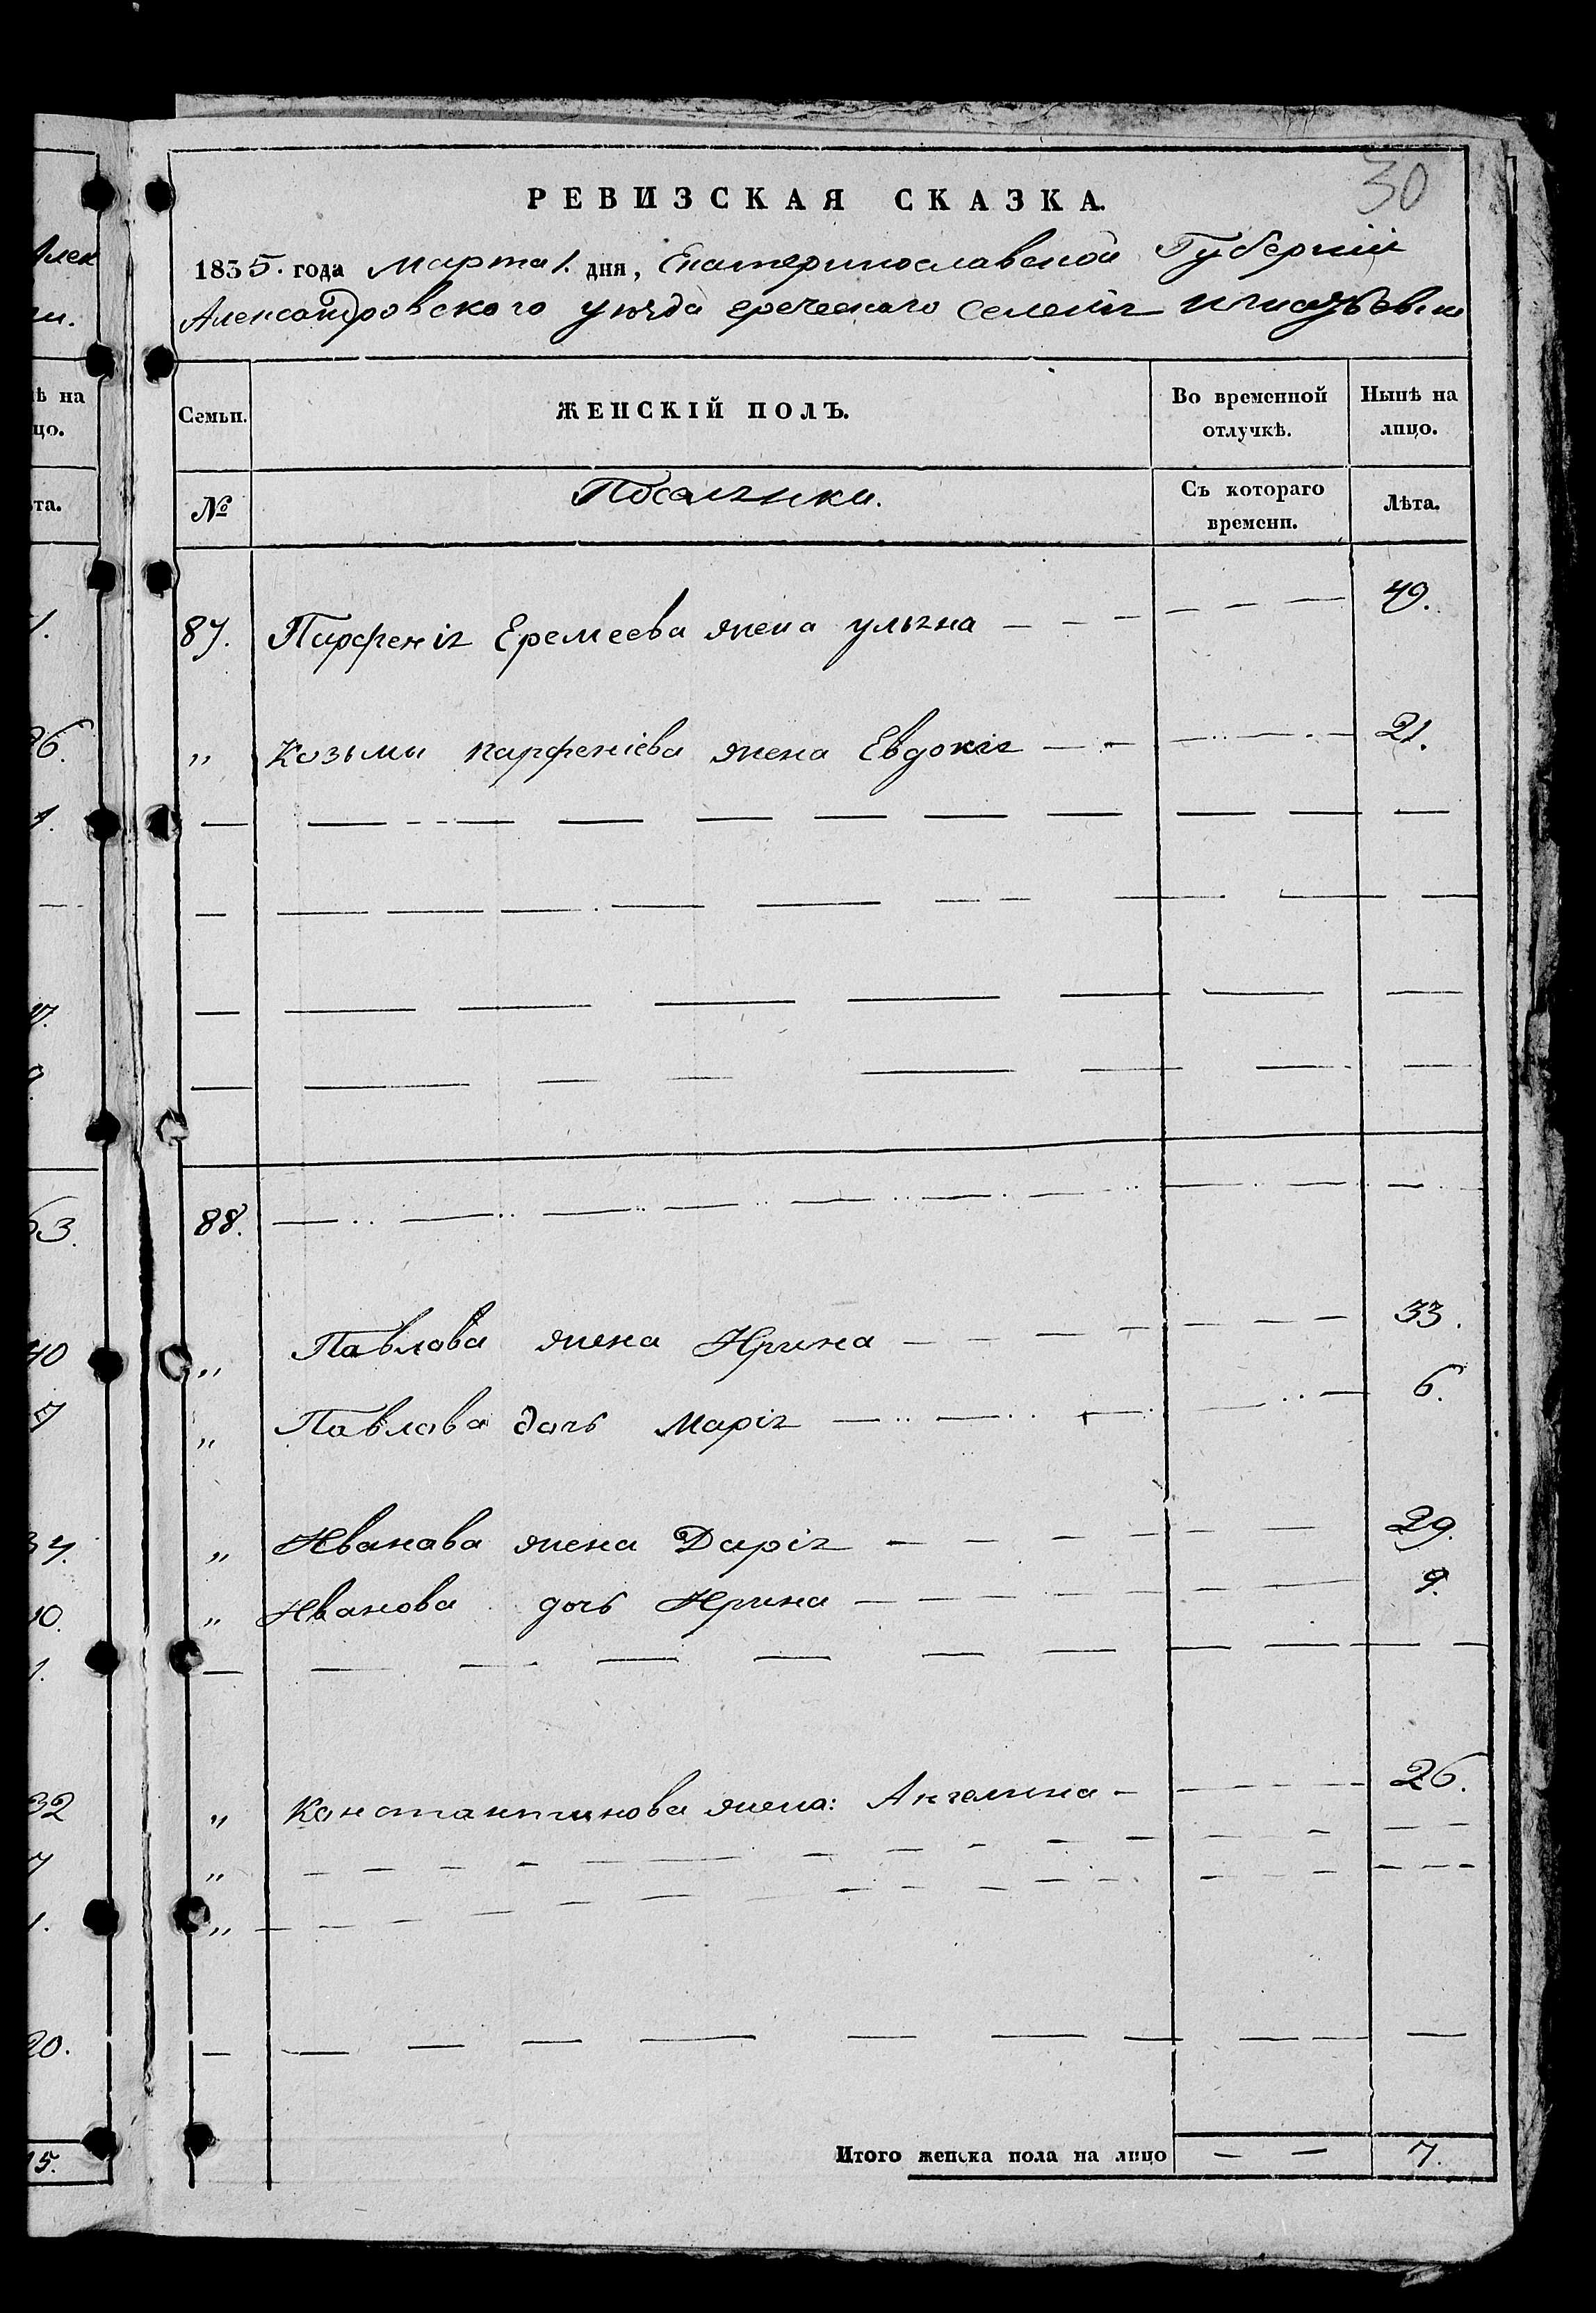 30
РЕВИЗСКАЯ СКАЗКА.
1835. года Марта 1. дня, Екатеринославской Губернии
Александровского уѣзда греческаго селенія Игнатьевки
Семьи.
ЖЕНСКІЙ ПОЛЪ.
Во временной отлучкѣ.
Нынѣ на лицо.
№
Поселянки.
Съ котораго времени.
Лѣта.
87. Парфенія Еремеева жена ульяна — — — 49.
„ Козьмы парфеніева жена Евдокія — — 21.
88.
„ Павлова жена Ирина — — — 33.
„ Павлова дочь Марія — — — 6.
„ Иванава жена Дарія — — — 29.
„ Иванова дочь Ирина — — — 9.
„ Константинова жена: Ангелина — 26.
„
„
Итого женска пола на лицо — — 7.
Алек
ѣ на
цо.
та.
1.
26.
1.
63.
40
7
34.
10.
1.
32
7
1.
20.
15.